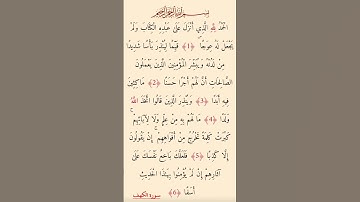 بِسْمِ اللَّهِ الرَّحْمَٰنِ الرَّحِيمِ
الْحَمْدُ لِلَّهِ الَّذِي أَنْزَلَ عَلَىٰ عَبْدِهِ الْكِتَابَ وَلَمْ
يَجْعَلْ لَهُ عِوَجًا ﴿1﴾ قَيِّمًا لِيُنْذِرَ بَأْسًا شَدِيدًا
مِنْ لَدُنْهُ وَيُبَشِّرَ الْمُؤْمِنِينَ الَّذِينَ يَعْمَلُونَ
الصَّالِحَاتِ أَنَّ لَهُمْ أَجْرًا حَسَنًا ﴿2﴾ مَاكِثِينَ
فِيهِ أَبَدًا ﴿3﴾ وَيُنْذِرَ الَّذِينَ قَالُوا اتَّخَذَ اللَّهُ
وَلَدًا ﴿4﴾ مَا لَهُمْ بِهِ مِنْ عِلْمٍ وَلَا لِآبَائِهِمْ ۚ
كَبُرَتْ كَلِمَةً تَخْرُجُ مِنْ أَفْوَاهِهِمْ ۚ إِنْ يَقُولُونَ
إِلَّا كَذِبًا ﴿5﴾ فَلَعَلَّكَ بَاخِعٌ نَفْسَكَ عَلَىٰ
آثَارِهِمْ إِنْ لَمْ يُؤْمِنُوا بِهَٰذَا الْحَدِيثِ
أَسَفًا ﴿6﴾ سورة الكهف